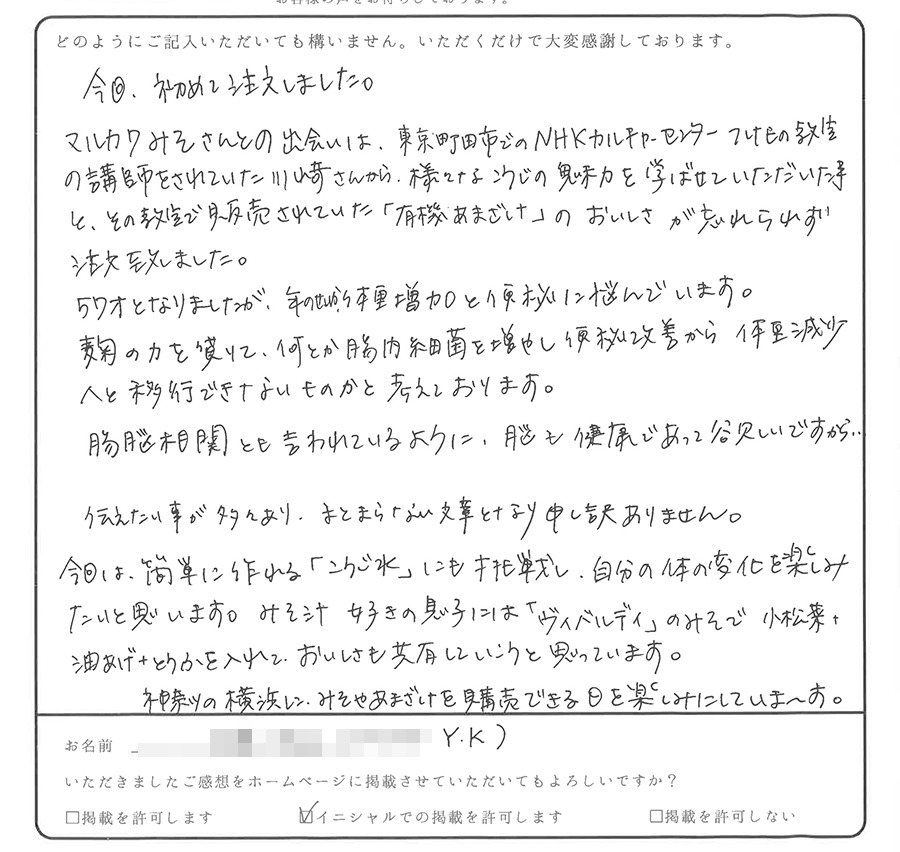 お客様の声をお待ちしております。
どのようにご記入いただいても構いません。いただくだけで大変感謝しております。
今回、初めて注文しました。
マルカワみそさんとの出会いは、東京町田市でのNHKカルチャーセンター つけもの教室
の講師をされていた川崎さんから、様々なこうじの魅力を学ばせていただいた事
と、その教室で販売されていた「有機あまざけ」のおいしさが忘れられず
注文致しました。
57才となりましたが、年のせいか体重増加と便秘に悩んでいます。
麹の力を借りて、何とか腸内細菌を増やし便秘改善から 体重減少
へと移行できないものかと考えております。
腸脳相関とも言われているように、脳も健康であって欲しいですから…
伝えたい事が多々あり、まとまらない文章となり申し訳ありません。
今回は、簡単に作れる「こうじ水」にも挑戦し、自分の体の変化を楽しみ
たいと思います。みそ汁 好きの息子には「ヴィベルディ」のみそで 小松菜+
油あげ+とうふを入れて、おいしさも共有していこうと思っています。
神奈川の横浜に、みそやあまざけを購売できる日を楽しみにしていま〜す。
お名前 Y.K)
いただきましたご感想をホームページに掲載させていただいてもよろしいですか？
□掲載を許可します ☑イニシャルでの掲載を許可します □掲載を許可しない